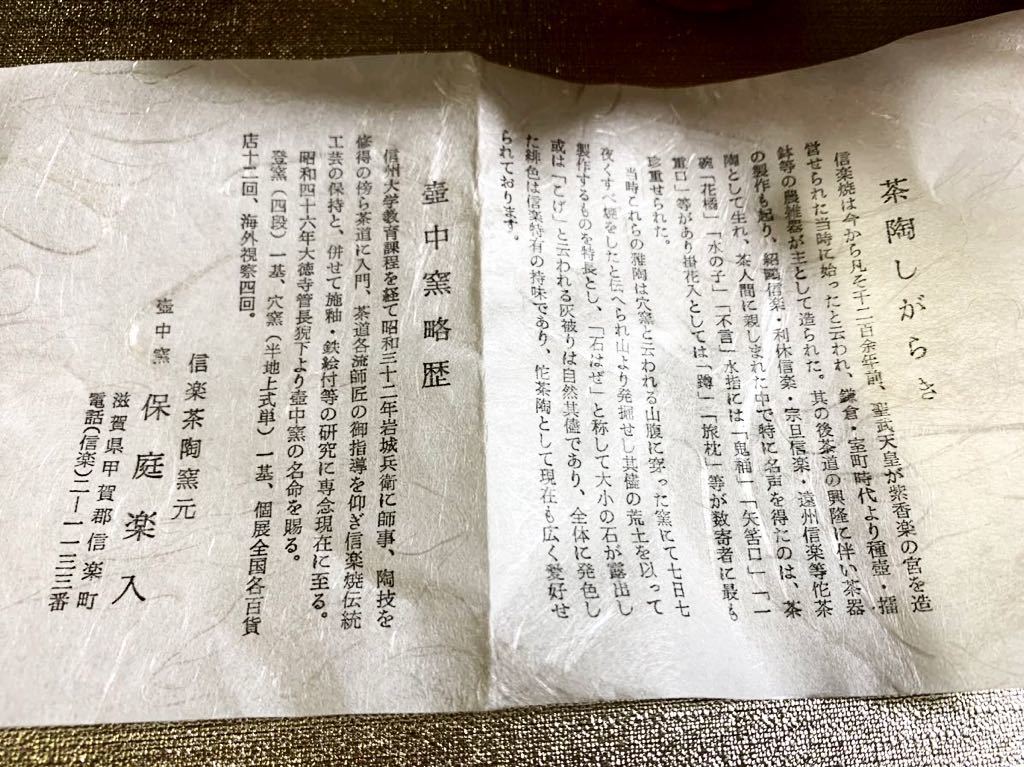 茶陶しがらき
信楽焼は今から凡そ千二百余年前、聖武天皇が紫香楽の宮を造
営せられた当時に始ったと云われ、鎌倉・室町時代より種壺・擂
鉢等の農雑器が主として造られた。其の後茶道の興隆に伴い茶器
の製作も起り、紹鷗信楽・利休信楽・宗旦信楽・遠州信楽等佗茶
陶として生れ、茶人間に親しまれた中で特に名声を得たのは、茶
碗「花橘」「水の子」「不言」水指には「鬼桶」「矢筈口」「一
重口」等があり掛花入としては「蹲」「旅枕」等が数寄者に最も
珍重せられた。
当時これらの雅陶は穴窯と云われる山腹に穿った窯にて七日七
夜くすべ焼をしたと伝へられ山より発掘せし其儘の荒土を以って
製作するものを特長とし、「石はぜ」と称して大小の石が露出し
或は「こげ」と云われる灰被りは自然其儘であり、全体に発色し
た緋色は信楽特有の持味であり、佗茶陶として現在も広く愛好せ
られております。
壺中窯略歴
信州大学教育課程を経て昭和三十二年岩城兵衛に師事、陶技を
修得の傍ら茶道に入門、茶道各流師匠の御指導を仰ぎ信楽焼伝統
工芸の保持と、併せて施釉・鉄絵付等の研究に専念現在に至る。
昭和四十六年大徳寺管長猊下より壺中窯の名命を賜る。
登窯（四段）一基、穴窯（半地上式単）一基、個展全国各百貨
店十二回、海外視察四回。
信楽茶陶窯元
壺中窯 保庭楽入
滋賀県甲賀郡信楽町
電話(信楽)二ー一一三三番